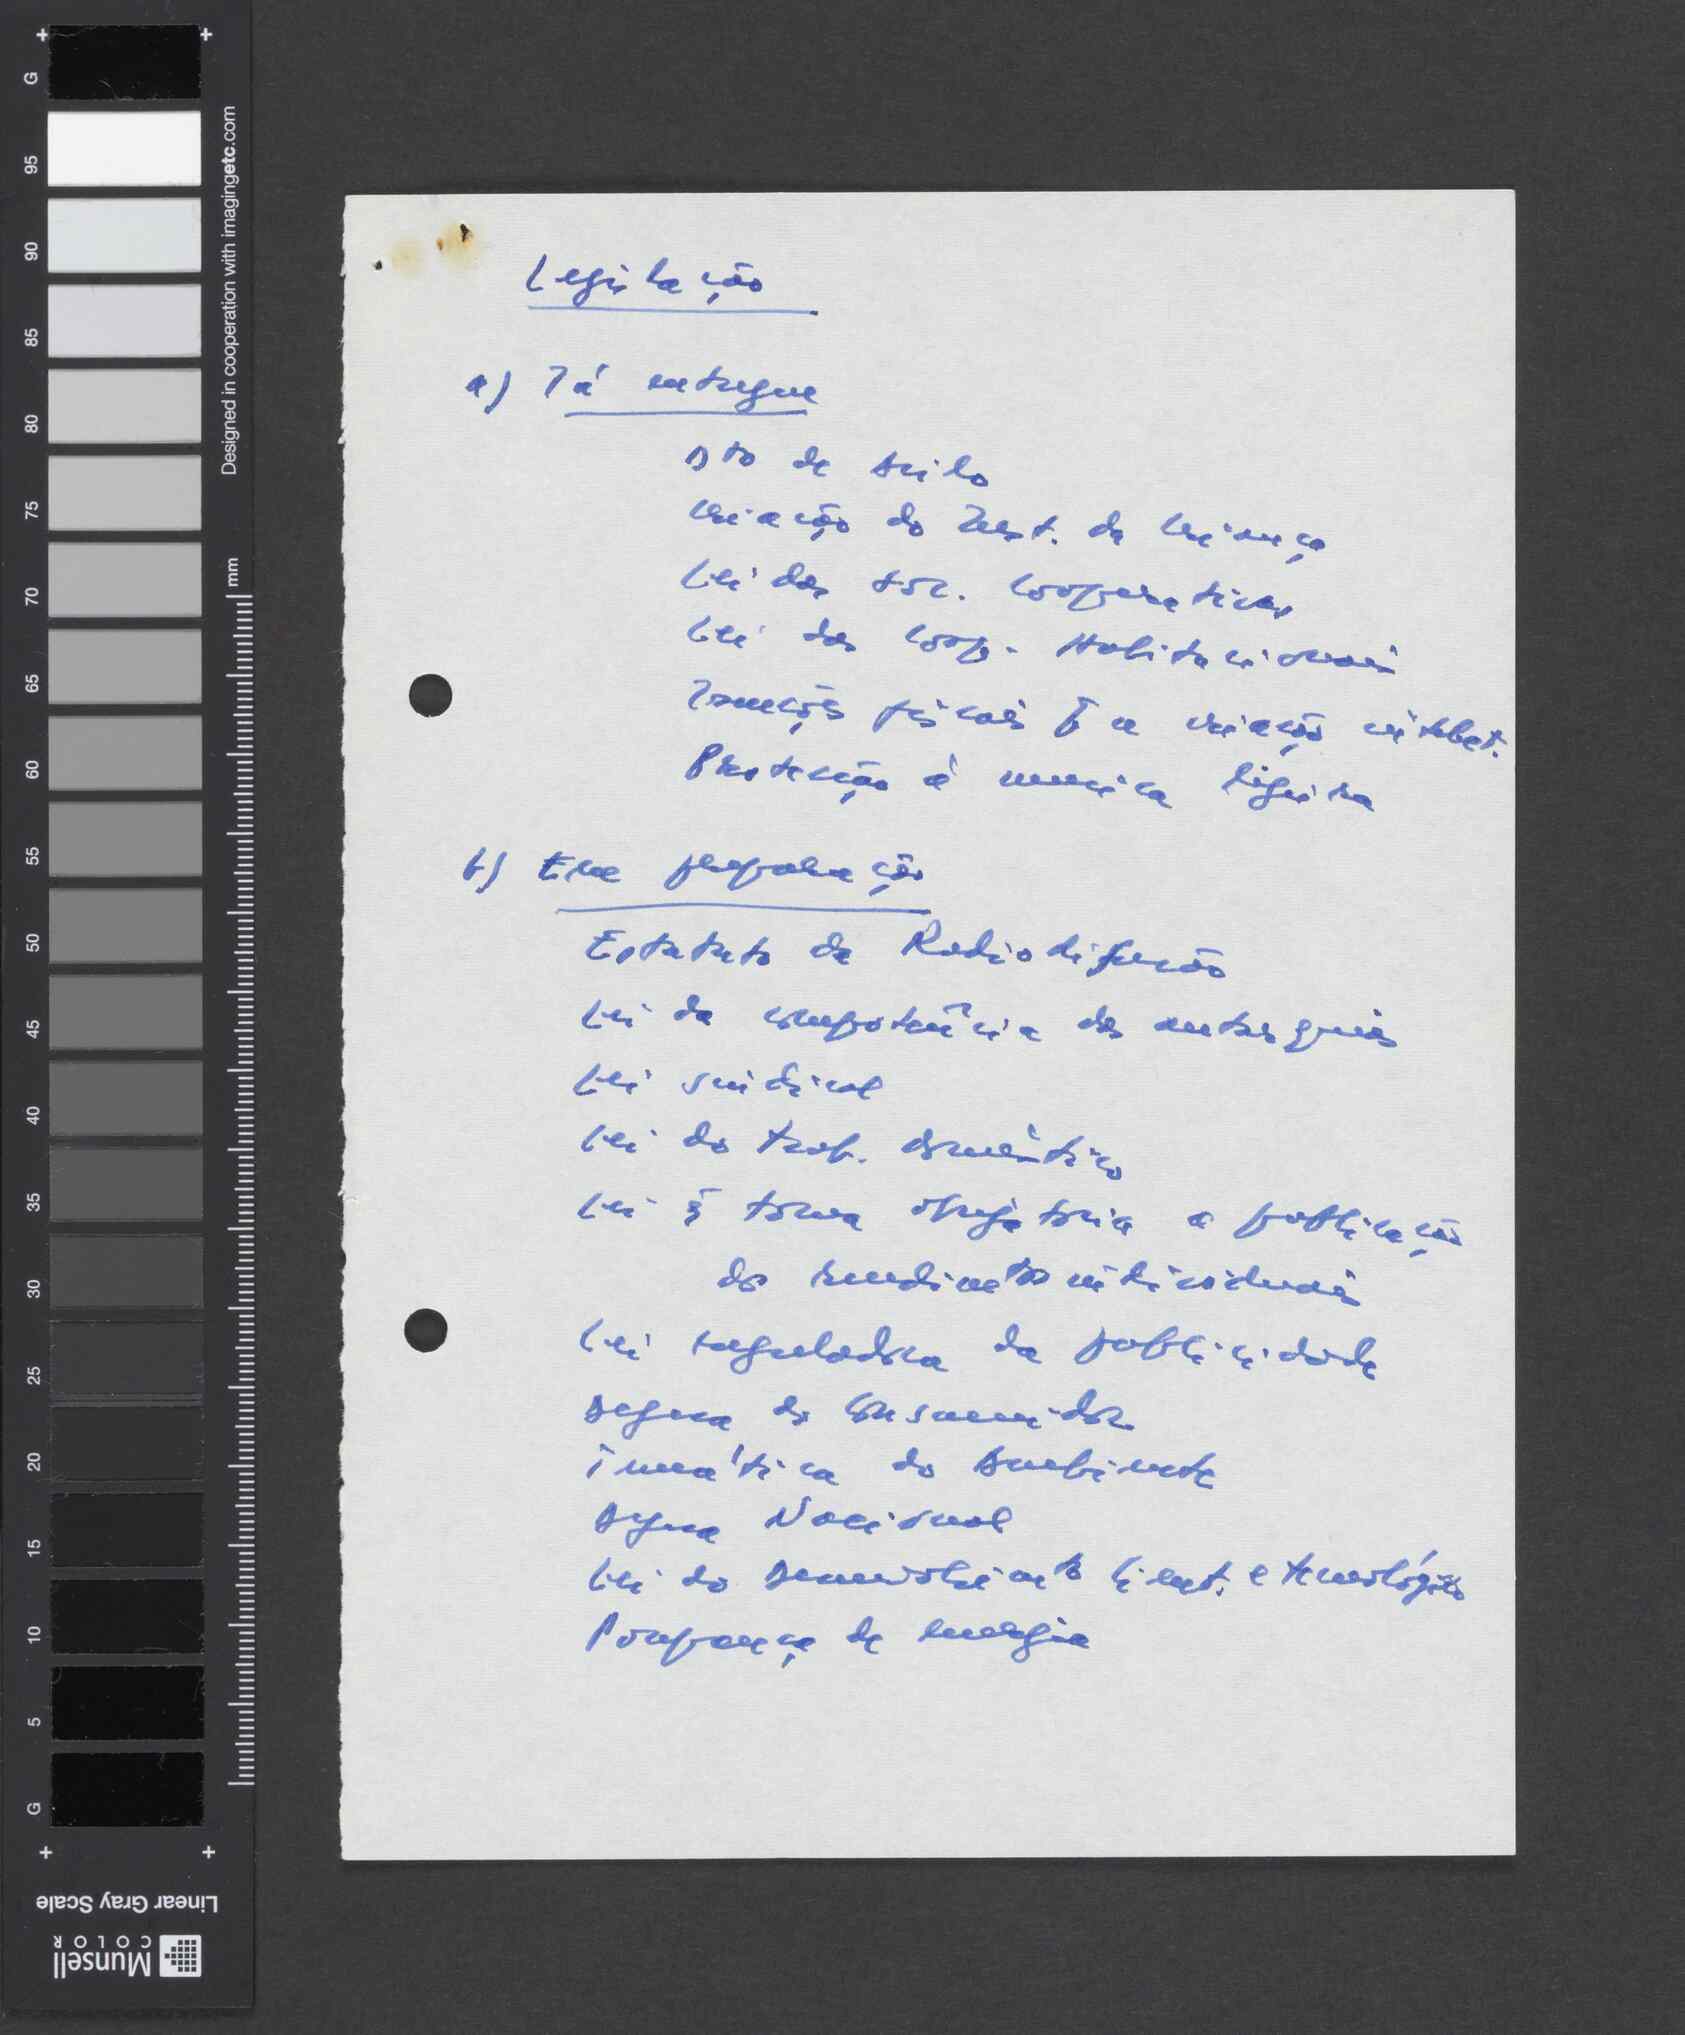 G
95
90
85
80
75
70
65
60
55
50
45
40
35
30
25
20
15
10
5
G
Designed in cooperation with imagingetc.com
mm
Linear Gray Scale
Munsell
COLOR
Legislação
a) Já entregue
Dto de Asilo
Criação do Inst. da Criança
Lei das Soc. Cooperativas
Lei das Coop. Habitacionais
Isenções fiscais p̄ a criação intelect.
Protecção à música ligeira
b) Em preparação
Estatuto da Radiodifusão
Lei da competência das autarquias
Lei sindical
Lei do trab. doméstico
Lei q̄ torna obrigatória a publicação
dos rendimetos individuais
Lei reguladora da publicidade
Defesa do Consumidor
do Ambiente
Defesa Nacional
Lei do Desenvolvimeto Cient. e tecnológico
Poupança de energia